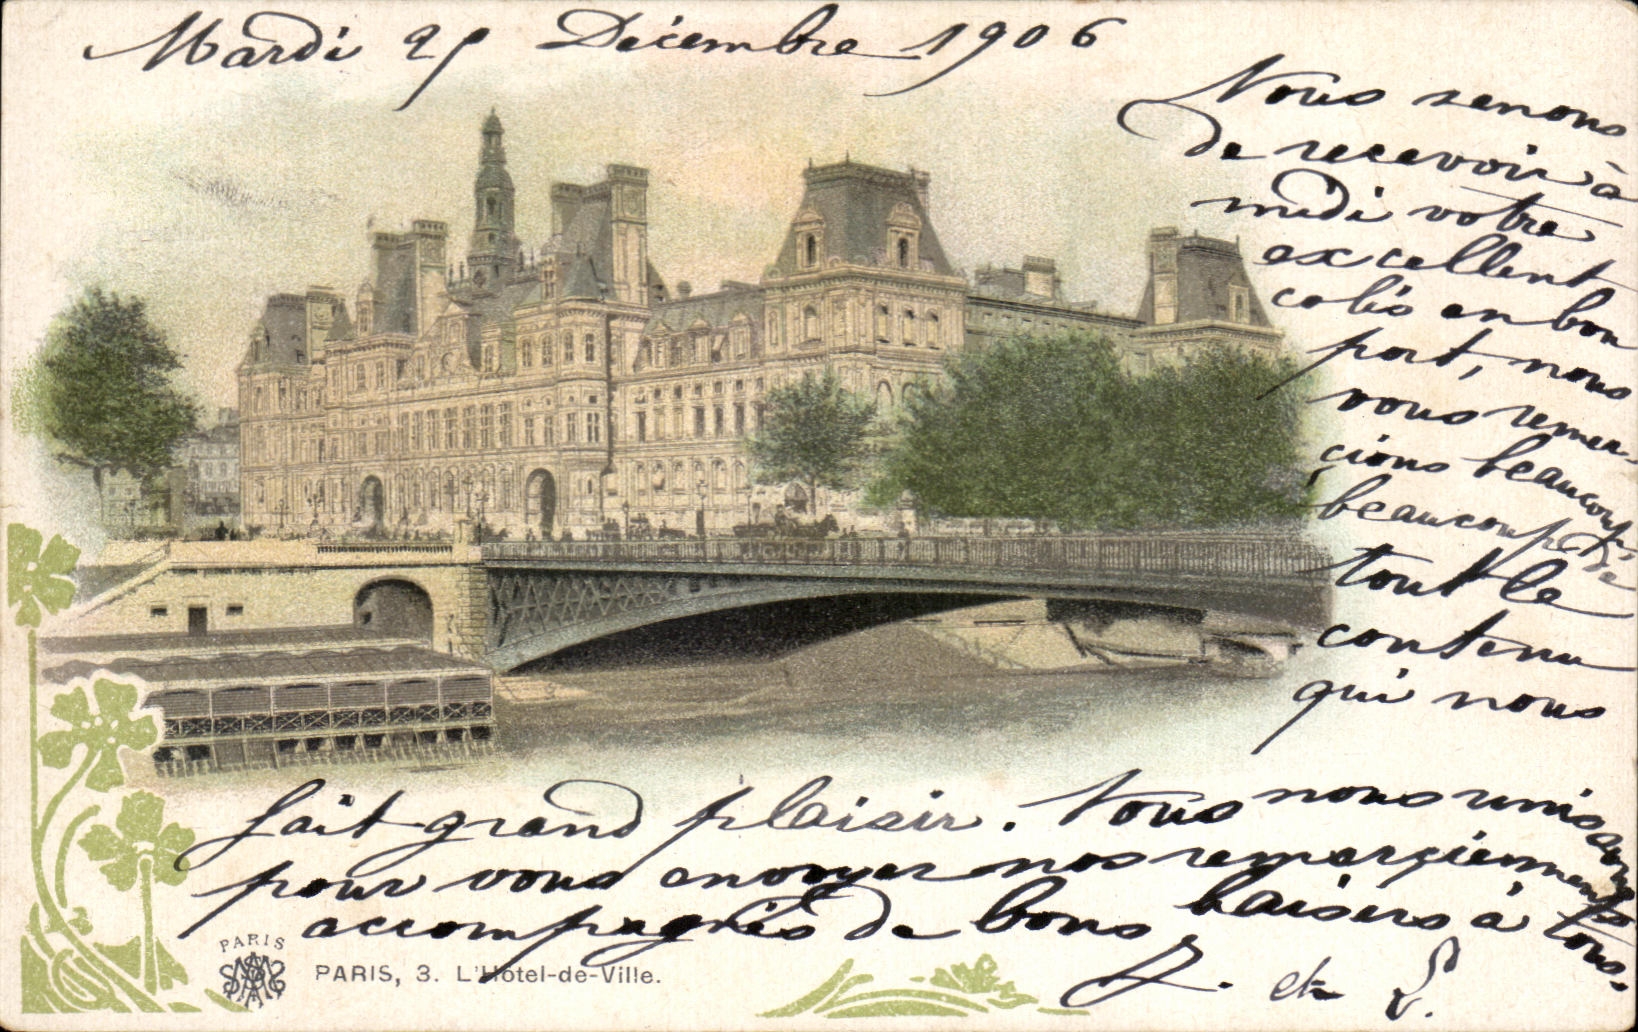 Mardi 25 Décembre 1906
Nous venons
de recevoir à
midi votre
excellent
colis en bon
port, nous
vous remer-
çions beaucoup,
beaucoup de
tout le
contenu
qui nous
fait grand plaisir. Tous nous unissons
pour vous envoyer nos remerçiements
accompagnés de bons baisers à tous.
et L.
PARIS
PARIS, 3. L'Hôtel-de-Ville.